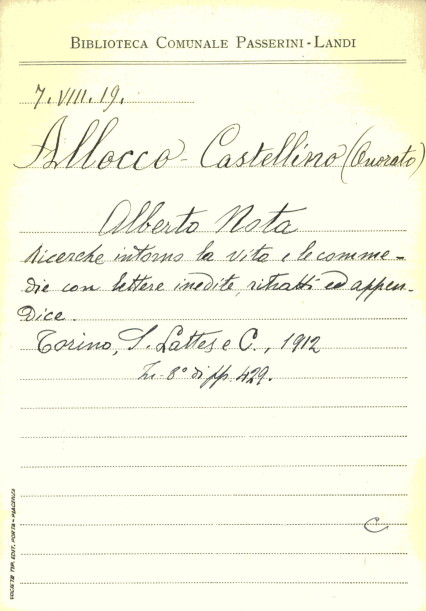 BIBLIOTECA COMUNALE PASSERINI-LANDI
7.VIII.19.
Allocco-Castellino (Onorato)
Alberto Nota
Ricerche intorno la vita e le comme-
die con lettere inedite, ritratti ed appen-
dice.
Torino, S. Lattes e C., 1912
In-8° di pp. 429.
C
SOCIETÀ TIP. EDIT. PORTA - PIACENZA